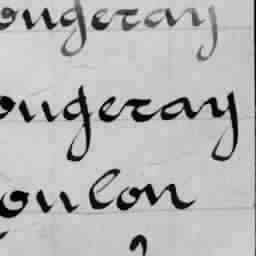 ougeray
ougeray
oulon